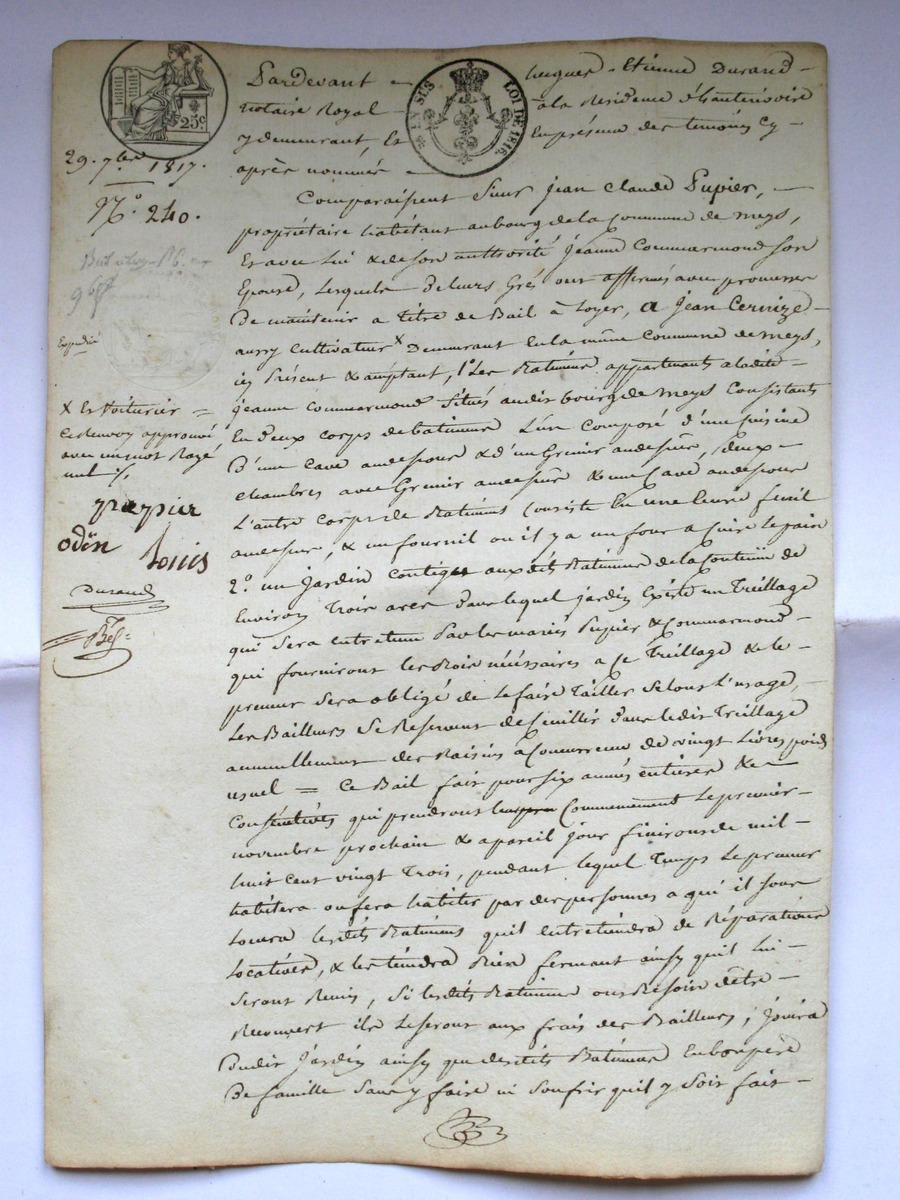 25c
EN SUS LOI DE 1816.
29. 7bre 1817.
N.° 240.
Expedié
x Et Voiturier =
Ce renvoy approuvé
avec un mot Rayé
nul ./.
pupier
odin Louis
Durand
Pardevant - hugues - Etienne Durand -
notaire Royal à la Residence d'hauterivoire
y demeurant, Et En présence des temoins Cy -
après nommés -
Comparaissent Sieur Jean Claude Pupier, -
propriétaire habitant au bourg de la Commune de meys,
Et avec Lui & de son authorité Jeanne Commarmond son
Epouse, Lesquels de leurs Grés ont affermés avec promesse
De maintenir a titre de Bail à Loyer, a Jean Cernize -
aussy Cultivateur x Demeurant En la même Commune de meys,
icy Présent & acceptant, 1.° Les Batimens appartenants a ladite -
Jeanne Commarmond Situés audit bourg de meys Consistants
En deux corps de batimens L'un Composé d'une Cuisine
D'une Cave au dessous & d'un Grenier au dessus, deux -
chambres avec Grenier au dessus & une Cave au dessous
L'autre Corps de Batimens Consiste En une Ecurie fenil
au dessus, & un fournil ou il y a un four a Cuire Le pain
2.° un Jardin Contigu aux dits Batimens de la Contenue de
Environ Trois ares dans lequel jardin Existe un Treillage
qui Sera entretenu Par les mariés Pupier & Commarmond -
qui fourniront les Bois nécessaires a Ce Treillage & le -
preneur Sera obligé de Le faire Tailler Selons L'usage, -
Les Bailleurs Se Reservent de Ceuillir dans ledit Treillage
annuellement des Raisins à Concurrence de vingt Livres poids
usuel = Ce Bail fait pour six années entieres & -
Consécutives qui prendront Commencement Le premier -
novembre prochain & a pareil jour finiront de mil -
huit cent vingt Trois, pendant lequel Temps Le preneur
habitera ou fera habiter par des personnes a qui il sous
Louera lesdits Batimens quil entretiendra de Réparations
Locatives, & les tiendra Bien fermant ainsy quil Lui -
Seront Remis, Si lesdits Batimens ont Besoin d'être -
Recouvert ils Le seront aux frais des Bailleurs; Jouira
Dudit Jardin ainsy que desdits Batimens En bon père
De famille Sans y faire ni Soufrir quil y Soit fait -